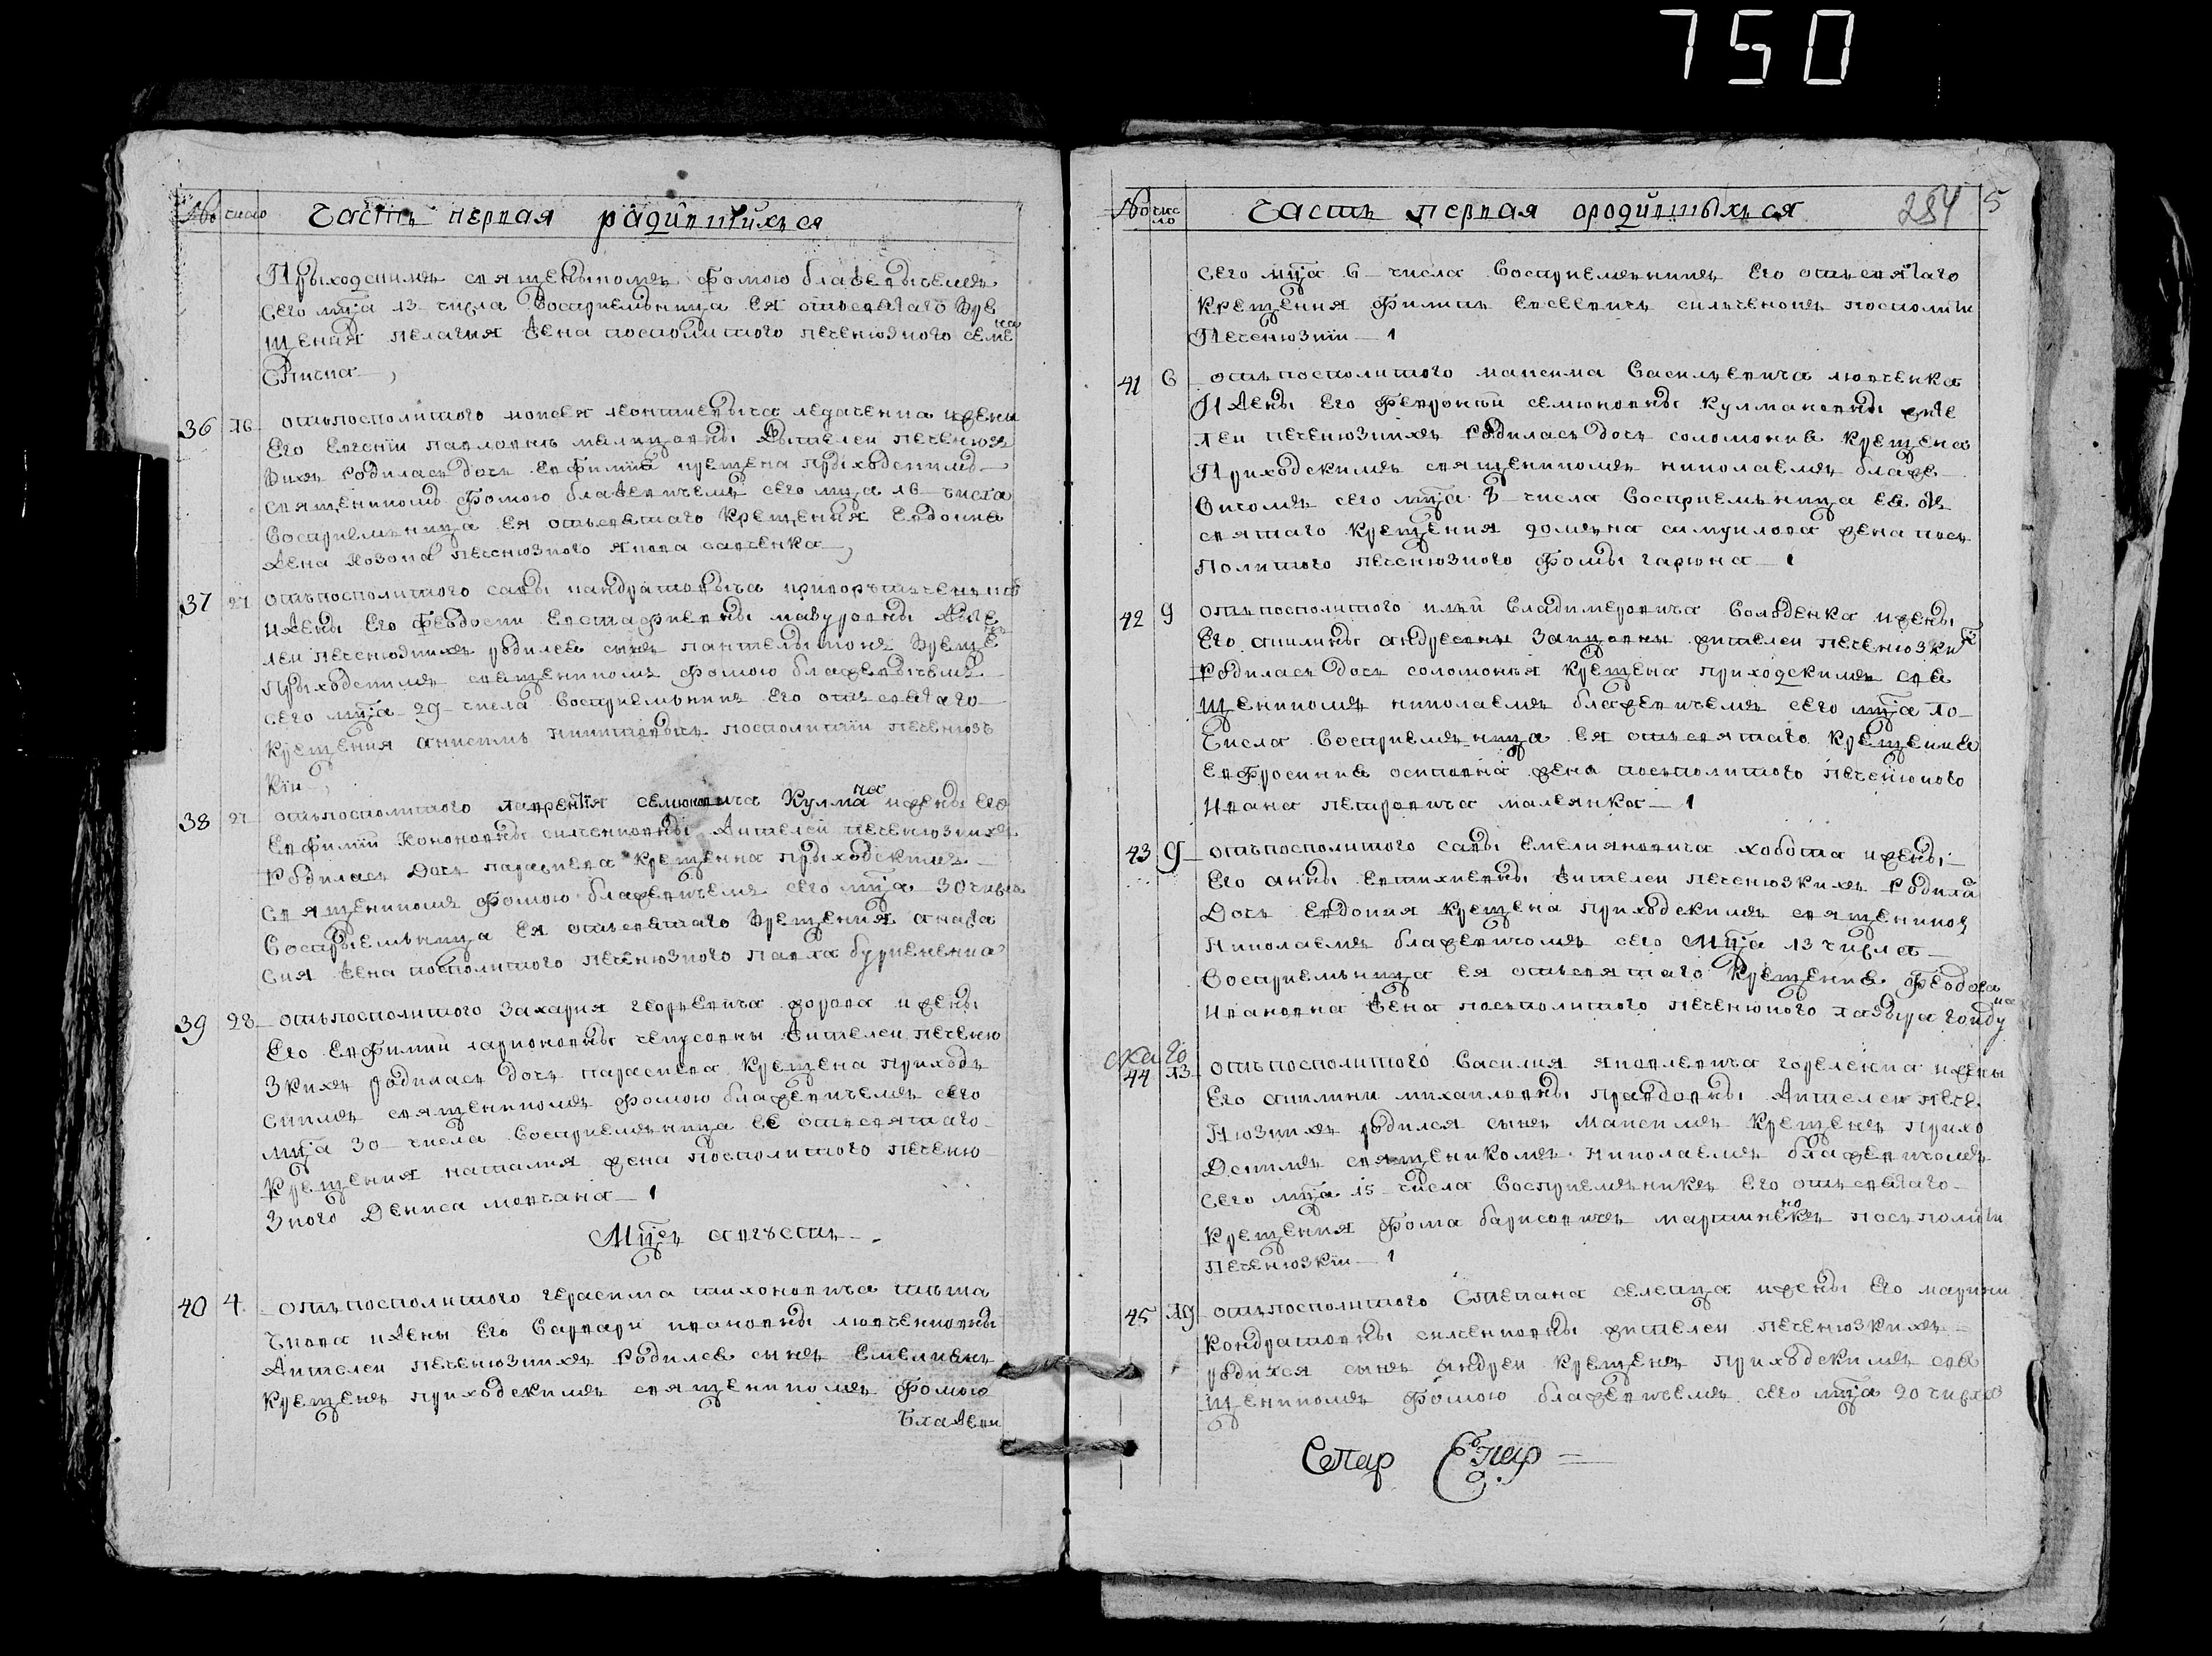 750
№ число Часть первая радившихься
Приходскимъ священникомъ Фомою блажевичемъ
сего мца 13 числа Восприемьница ея отъ святаго Кре
щения пелагия жена посполитого печенюзкого семе
на
Спична
36 16 отъ посполитого мойсея леонтиевыча ледаченка и жени
Его Евгении павловны жытелей печенюз
кихъ родилась дочь Евфимия крещена приходскимъ
священникомъ Фомою блажевичемъ сего мца 16 числа
Восприемьница ея отъ святаго Крещения Евдокия
жена Козака печенюзкого якова савченка
37 27 отъ посполитого савы кандратовыча
и жены Его Феодосии Евстафиевны мазуровны жите
лей печенюзкихъ родился сынъ пантелымонъ Креще
нъ
приходскимъ священникомъ Фомою блажевичемъ
сего мца 29 числа Восприемьникъ Его отъ святаго
Крещения анисимъ посполитий печенюзъ
кий
38 27 отъ посполитого лаврентия семионовича Кулма ка и жены Его
Евфимии Кононовны силченковны жителей печенюзкихъ
Родилась Дочь параскева Крещенна приходскимъ
священникомъ Фомою блажевичемъ сего мца 30 числа
Восприемьница ея отъ святаго Крещения анаста
сия жена посполитого печенюзкого павла
39 28 отъ посполитого Захария георгиевича жорова и жены
Его Евфимии ларионовны жителей печеню
зкихъ родилась дочь параскева Крещена приходъ
скимъ священникомъ Фомою блажевичемъ сего
мца 30 числа Восприемьница ее отъ святаго
Крещения наталия жена посполитого печеню
зкого Дениса мовчана 1
Мцъ августъ
40 4 отъ посполитого герасима тихоновича
и жены Его Варвари ивановны
жителей печенюзкихъ Родился сынъ Емелиянъ
Крещенъ приходскимъ священникомъ Фомою
Блажеви
№ число Часть первая ородившыхься 284 5
сего мца 6 числа Восприемьникъ Его отъ святаго
Крещения Филипъ Евсеевичъ силченокъ посполити
Печенюзкий 1
41 6 отъ посполитого максима Василиевича
И жены Его Февронии семионовны Кулмаковны жите
лей печенюзкихъ Родилась дочь соломония Крещена
Приходскимъ священникомъ николаемъ блаже
вичомъ сего мца 8 числа Восприемьница ея отъ
святаго Крещения домъна самуилова жена посъ
политого печенюзкого Фомы гарюна 1
42 9 отъ посполитого илии Владимеровича Володенка и жены
Его акилины андреевны Заицовны жителей печенюзких
Родилась дочь соломония Крещена приходскимъ свя
щенникомъ николаемъ блажевичемъ сего мца 10
Числа Восприемьница ея отъ святаго Крещения
Евфросиния осиповна жена посполитого печенюкого
Ивана петровича малеянка 1
43 9 отъ посполитого савы Емелияновича хобота и жены
Его анны Евтихиевны жителей печенюзкихъ Родила
Дочь Евдокия Крещена приходскимъ священникомъ
Николаемъ блажевичомъ сего Мца 13 числа
Восприемьница ея отъ святаго Крещения Феодора
Ивановна жена посполитого печенюкого
44 13 отъ посполитого Василия яковлевича гореленка и жены
Его акилини михаиловны правдовны жителей пече
Нюзкихъ родился сынъ Максимъ Крещенъ прихо
Дскимъ священикомъ Николаемъ блажевичомъ
сего мца 15 числа Восприемьникъ Его отъ святаго
Крещения Фома барисовичъ посполити
печенюзкии 1
45 19 отъ посполитого Степана селезца и жены Его марини
Кондратовны силченковны жителей печенюзкихъ
родился сынъ андреи Крещенъ приходскимъ свя
щенникомъ Фомою блажевичемъ сего мца 20 числа